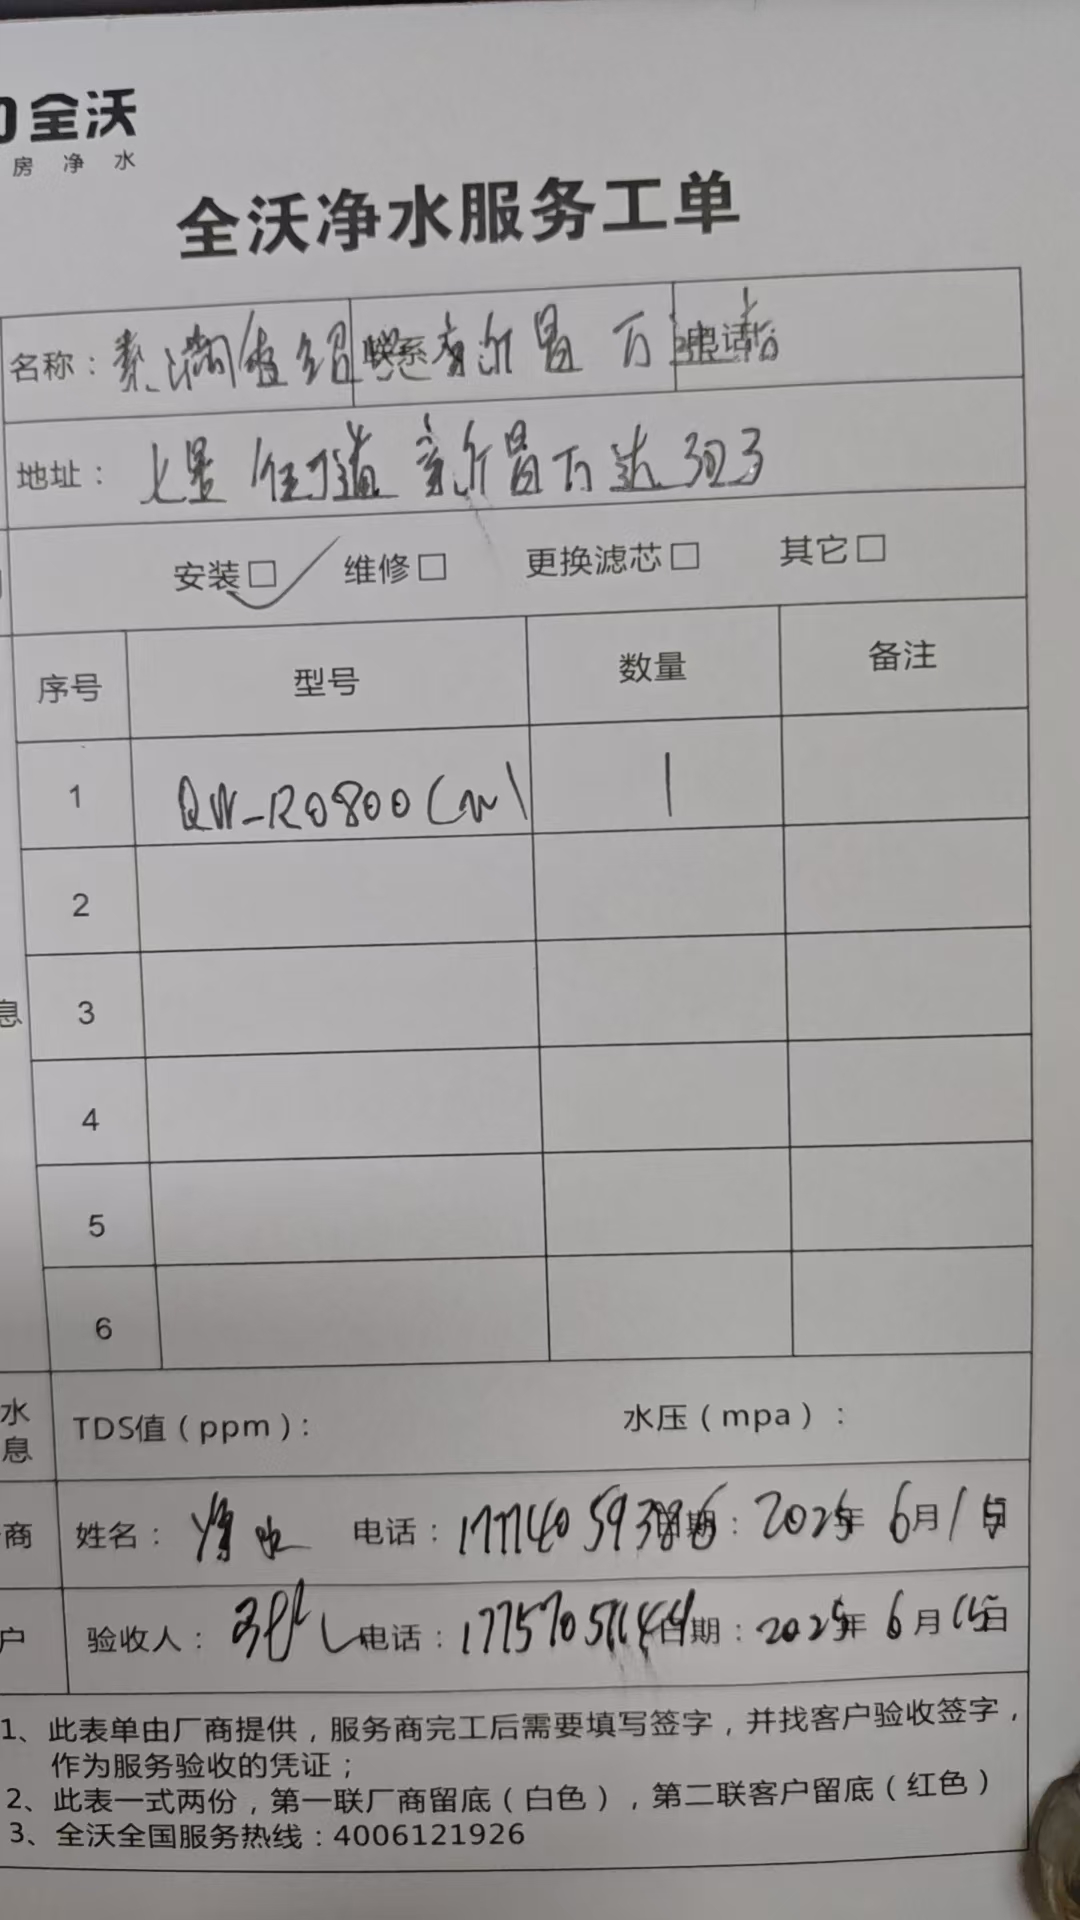 全沃
房净水
全沃净水服务工单
名称： 联系 新昌 万达 电话
地址： 七星街道新昌万达3023
安装□ 维修□ 更换滤芯□ 其它□
序号 型号 数量 备注
1 QW-R0800 1
2
3
4
5
6
水 TDS值（ppm）： 水压（mpa）：
息
商 姓名： 电话：17714059386 日期：2025年6月15日
户 验收人： 电话： 日期：2025年6月15日
1、此表单由厂商提供，服务商完工后需要填写签字，并找客户验收签字，
作为服务验收的凭证；
2、此表一式两份，第一联厂商留底（白色），第二联客户留底（红色）
3、全沃全国服务热线：4006121926